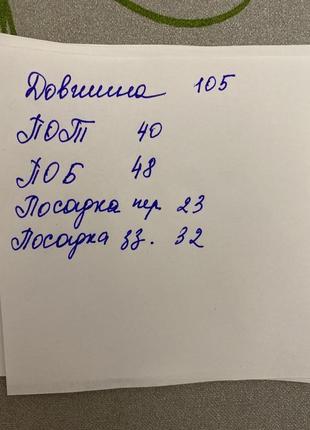 Довжина 105
ПОТ 40
ПОБ 48
Посадка пер 23
Посадка зз. 32